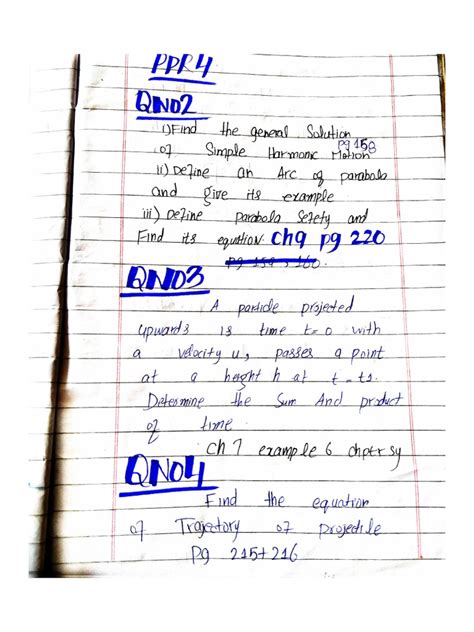 PPR4
QN02
i) Find the general Solution
of Simple Harmonic Motion pg 158
ii) Define an Arc of parabola
and give its example
iii) Define parabola Sefety and
Find its equation. ch9 pg 220
pg 159, 160
QN03
A particle projected
upwards is time t=0 with
a velocity u, passes a point
at a height h at t = t1.
Determine the Sum And product
of time.
Ch 7 example 6 chptr sy
QN04
Find the equation
of Trajectory of projectile
pg 215+216